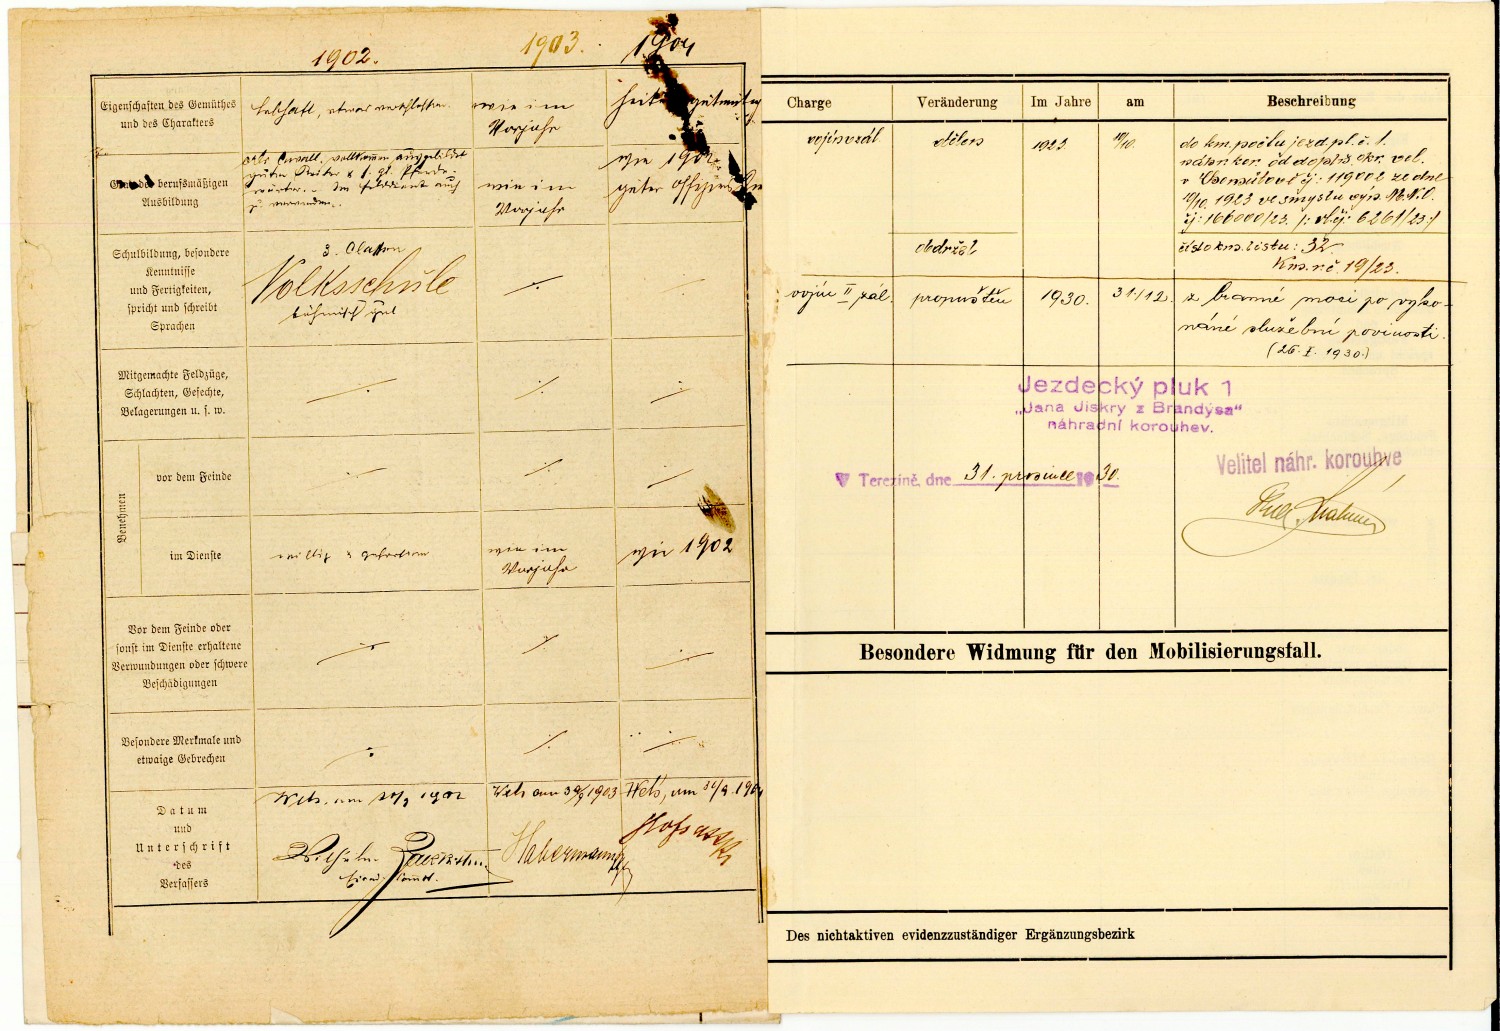 1902.
1903.
1904
Eigenschaften des Gemüthes
und des Charakters
lebhaft, etwas verschlossen.
wie im
Vorjahr
heiter gutmütig
berufsmäßigen
Ausbildung
vollkommen ausgebildet
guter Reiter & s. gt. Pferde-
wärter. Im Felddienst auch
zu verwenden.
wie im
Vorjahr
wie 1902
guter Offiziers
Schulbildung, besondere
Kenntnisse
und Fertigkeiten,
spricht und schreibt
Sprachen
3. Classen
Volksschule
böhmisch gut
Mitgemachte Feldzüge,
Schlachten, Gefechte,
Belagerungen u. s. w.
Benehmen
vor dem Feinde
im Dienste
willig & gehorsam
wie im
Vorjahr
wie 1902
Vor dem Feinde oder
sonst im Dienste erhaltene
Verwundungen oder schwere
Beschädigungen
Besondere Merkmale und
etwaige Gebrechen
Datum
und
Unterschrift
des
Verfassers
Wels, am 1902
Wels am 1903
Wels, am 190
Wilhelm
Habermann
Charge
Veränderung
Im Jahre
am
Beschreibung
vojín zál.
dělen
1923
1/10.
do km. počtu jezd. pl. č. 1.
náhr. kor. od doplň. okr. vel.
čj: 119002 ze dne
1923 ve smyslu výn. M.N.O.
čj: 166000/23.
obdržel
číslo km. listu: 32
Km. r. č. 19/23.
vojín II zál.
propuštěn
1930.
31/12.
z branné moci po vyko-
náné služební povinosti.
(26. I. 1930.)
Jezdecký pluk 1
„Jana Jiskry z Brandýsa"
náhradní korouhev.
V Terezíně, dne 31. prosince 1930.
Velitel náhr. korouhve
Besondere Widmung für den Mobilisierungsfall.
Des nichtaktiven evidenzzuständiger Ergänzungsbezirk